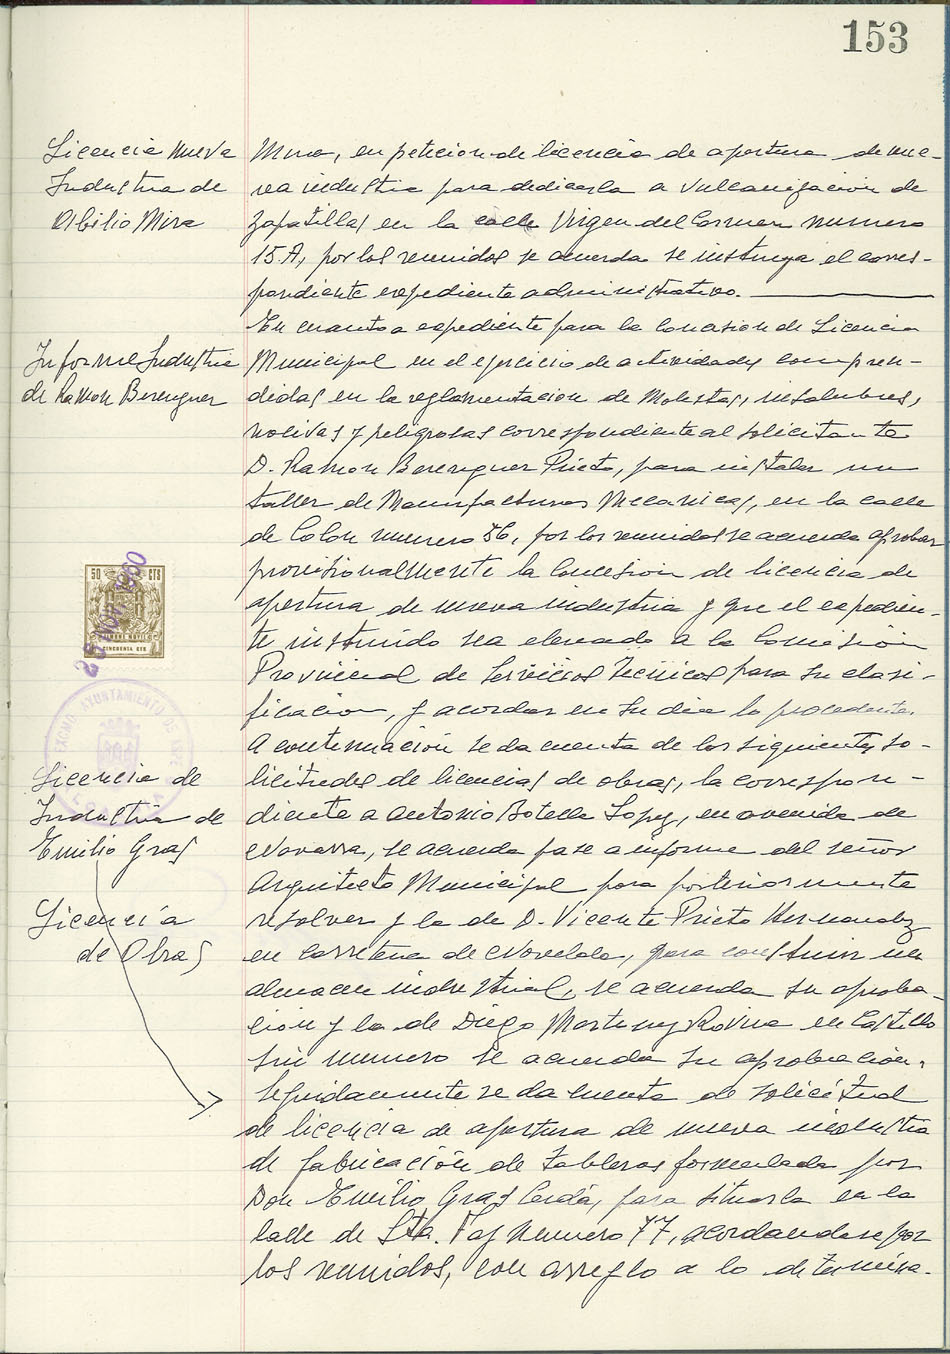 153
Licencia Nueva
Industria de
Abilio Mira
Mira, en peticion de licencia de apertura de nue-
va industria para dedicarla a vulcanizacion de
zapatillas en la calle Virgen del Carmen numero
15.A, por los reunidos se acuerda se instruya el corres-
pondiente expediente administrativo.
Informe Industria
de Ramon Berenguer
En cuanto a expediente para la concesion de Licencia
Municipal en el ejercicio de actividades compren-
didas en la reglamentacion de Molestas, insalubres,
nocivas y peligrosas correspondiente al solicitante
D. Ramon Berenguer Prieto, para instalar un
taller de Manufacturas Mecanicas, en la calle
de Colon numero 56, por los reunidos se acuerda aprobar
provisionalmente la concesion de licencia de
apertura de nueva industria y que el expedien-
te instruido sea elevado a la Comisión
Provincial de Servicios Tecnicos para su clasi-
ficacion, y acordar en su dia lo procedente.
50 CTS
25 NOV. 1960
CINCUENTA CTS
EXCMO AYUNTAMIENTO DE ASPE
Licencia de
Industria de
Emilio Gras
Licencia
de Obras
A continuación se da cuenta de los siguientes so-
licitudes de licencias de obras, la correspon-
diente a Antonio Botella Lopez, en avenida de
Navarra, se acuerda pase a informe del señor
Arquitecto Municipal para posteriormente
resolver y la de D. Vicente Prieto Hernandez
en carretera de Novelda, para construir un
almacen industrial, se acuerda su aproba-
ción y la de Diego Martinez Rovira en Castillo
sin numero se acuerda su aprobación.
Seguidamente se da cuenta de solicitud
de licencia de apertura de nueva industria
de fabricación de tableros formulada por
Don Emilio Gras Cerdá, para situarla en la
calle de Sta. Faz numero 77, acordandose por
los reunidos, con arreglo a lo determina-